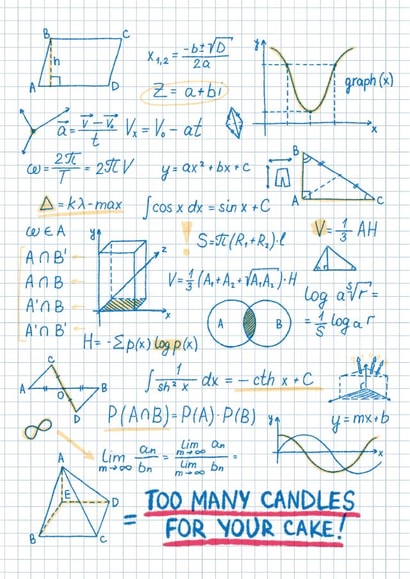 B C
h
A D
x₁,₂ = (-b±√D)/2a
Z = a+bi
y
graph(x)
x
a⃗ = (v⃗ - v⃗₀)/t Vₓ = V₀ - at
ω = 2π/T = 2πV y = ax² + bx + c
B
A C
Δ = kλ-max ∫cos x dx = sin x + C
ω ∈ A
A ∩ B'
A ∩ B
A' ∩ B
A' ∩ B'
y
z
x
! S = π(R₁+R₂)·l
V = 1/3 AH
V = 1/3 (A₁+A₂+√A₁A₂)·H
A B
log a ˢ√r =
= 1/S log a r
H = -Σp(x) log p(x)
C
A O B
D
∫ 1/sh² x dx = - cth x + C
P(A∩B) = P(A)·P(B)
y = mx+b
y
x
∞
Lim m→∞ an/bn = Lim m→∞ an / Lim m→∞ bn =
A
E D
B C
= TOO MANY CANDLES
FOR YOUR CAKE!